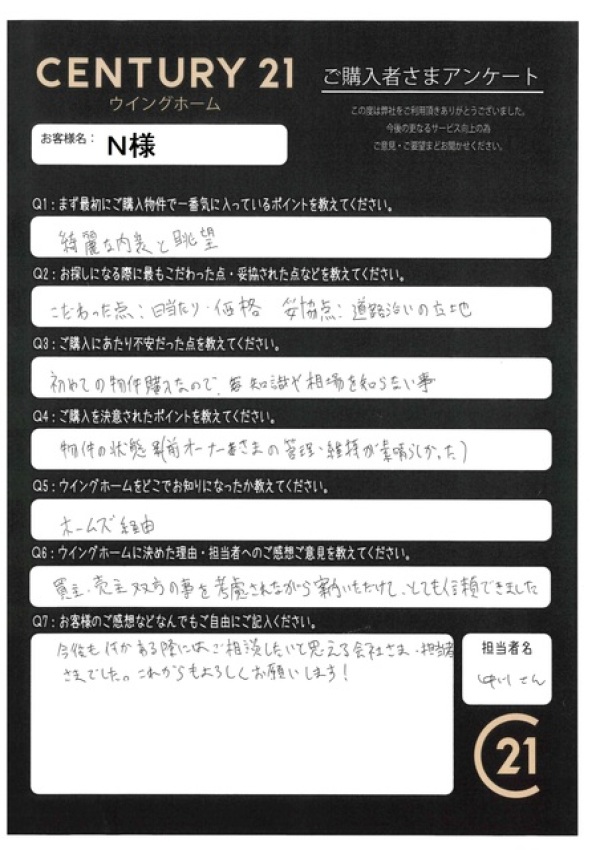 CENTURY 21
ウイングホーム
ご購入者さまアンケート
この度は弊社をご利用頂きありがとうございました。
今後の更なるサービス向上の為
ご意見・ご要望までお聞かせください。
お客様名： N様
Q1：まず最初にご購入物件で一番気に入っているポイントを教えてください。
綺麗な内装と眺望
Q2：お探しになる際に最もこだわった点・妥協された点などを教えてください。
こだわった点：日当たり・価格 妥協点：道路沿いの立地
Q3：ご購入にあたり不安だった点を教えてください。
初めての物件購入なので、知識や相場を知らない事
Q4：ご購入を決意されたポイントを教えてください。
物件の状態(前オーナーさまの管理・維持が素晴らしかった)
Q5：ウイングホームをどこでお知りになったか教えてください。
ホームズ経由
Q6：ウイングホームに決めた理由・担当者へのご感想ご意見を教えてください。
買主、売主双方の事を考慮されながら案内いただけて、とても信頼できました
Q7：お客様のご感想などなんでもご自由にご記入ください。
今後も何かある際にはご相談したいと思える会社さま・担当者
さまでした。これからもよろしくお願いします！
担当者名
中川さん
C21